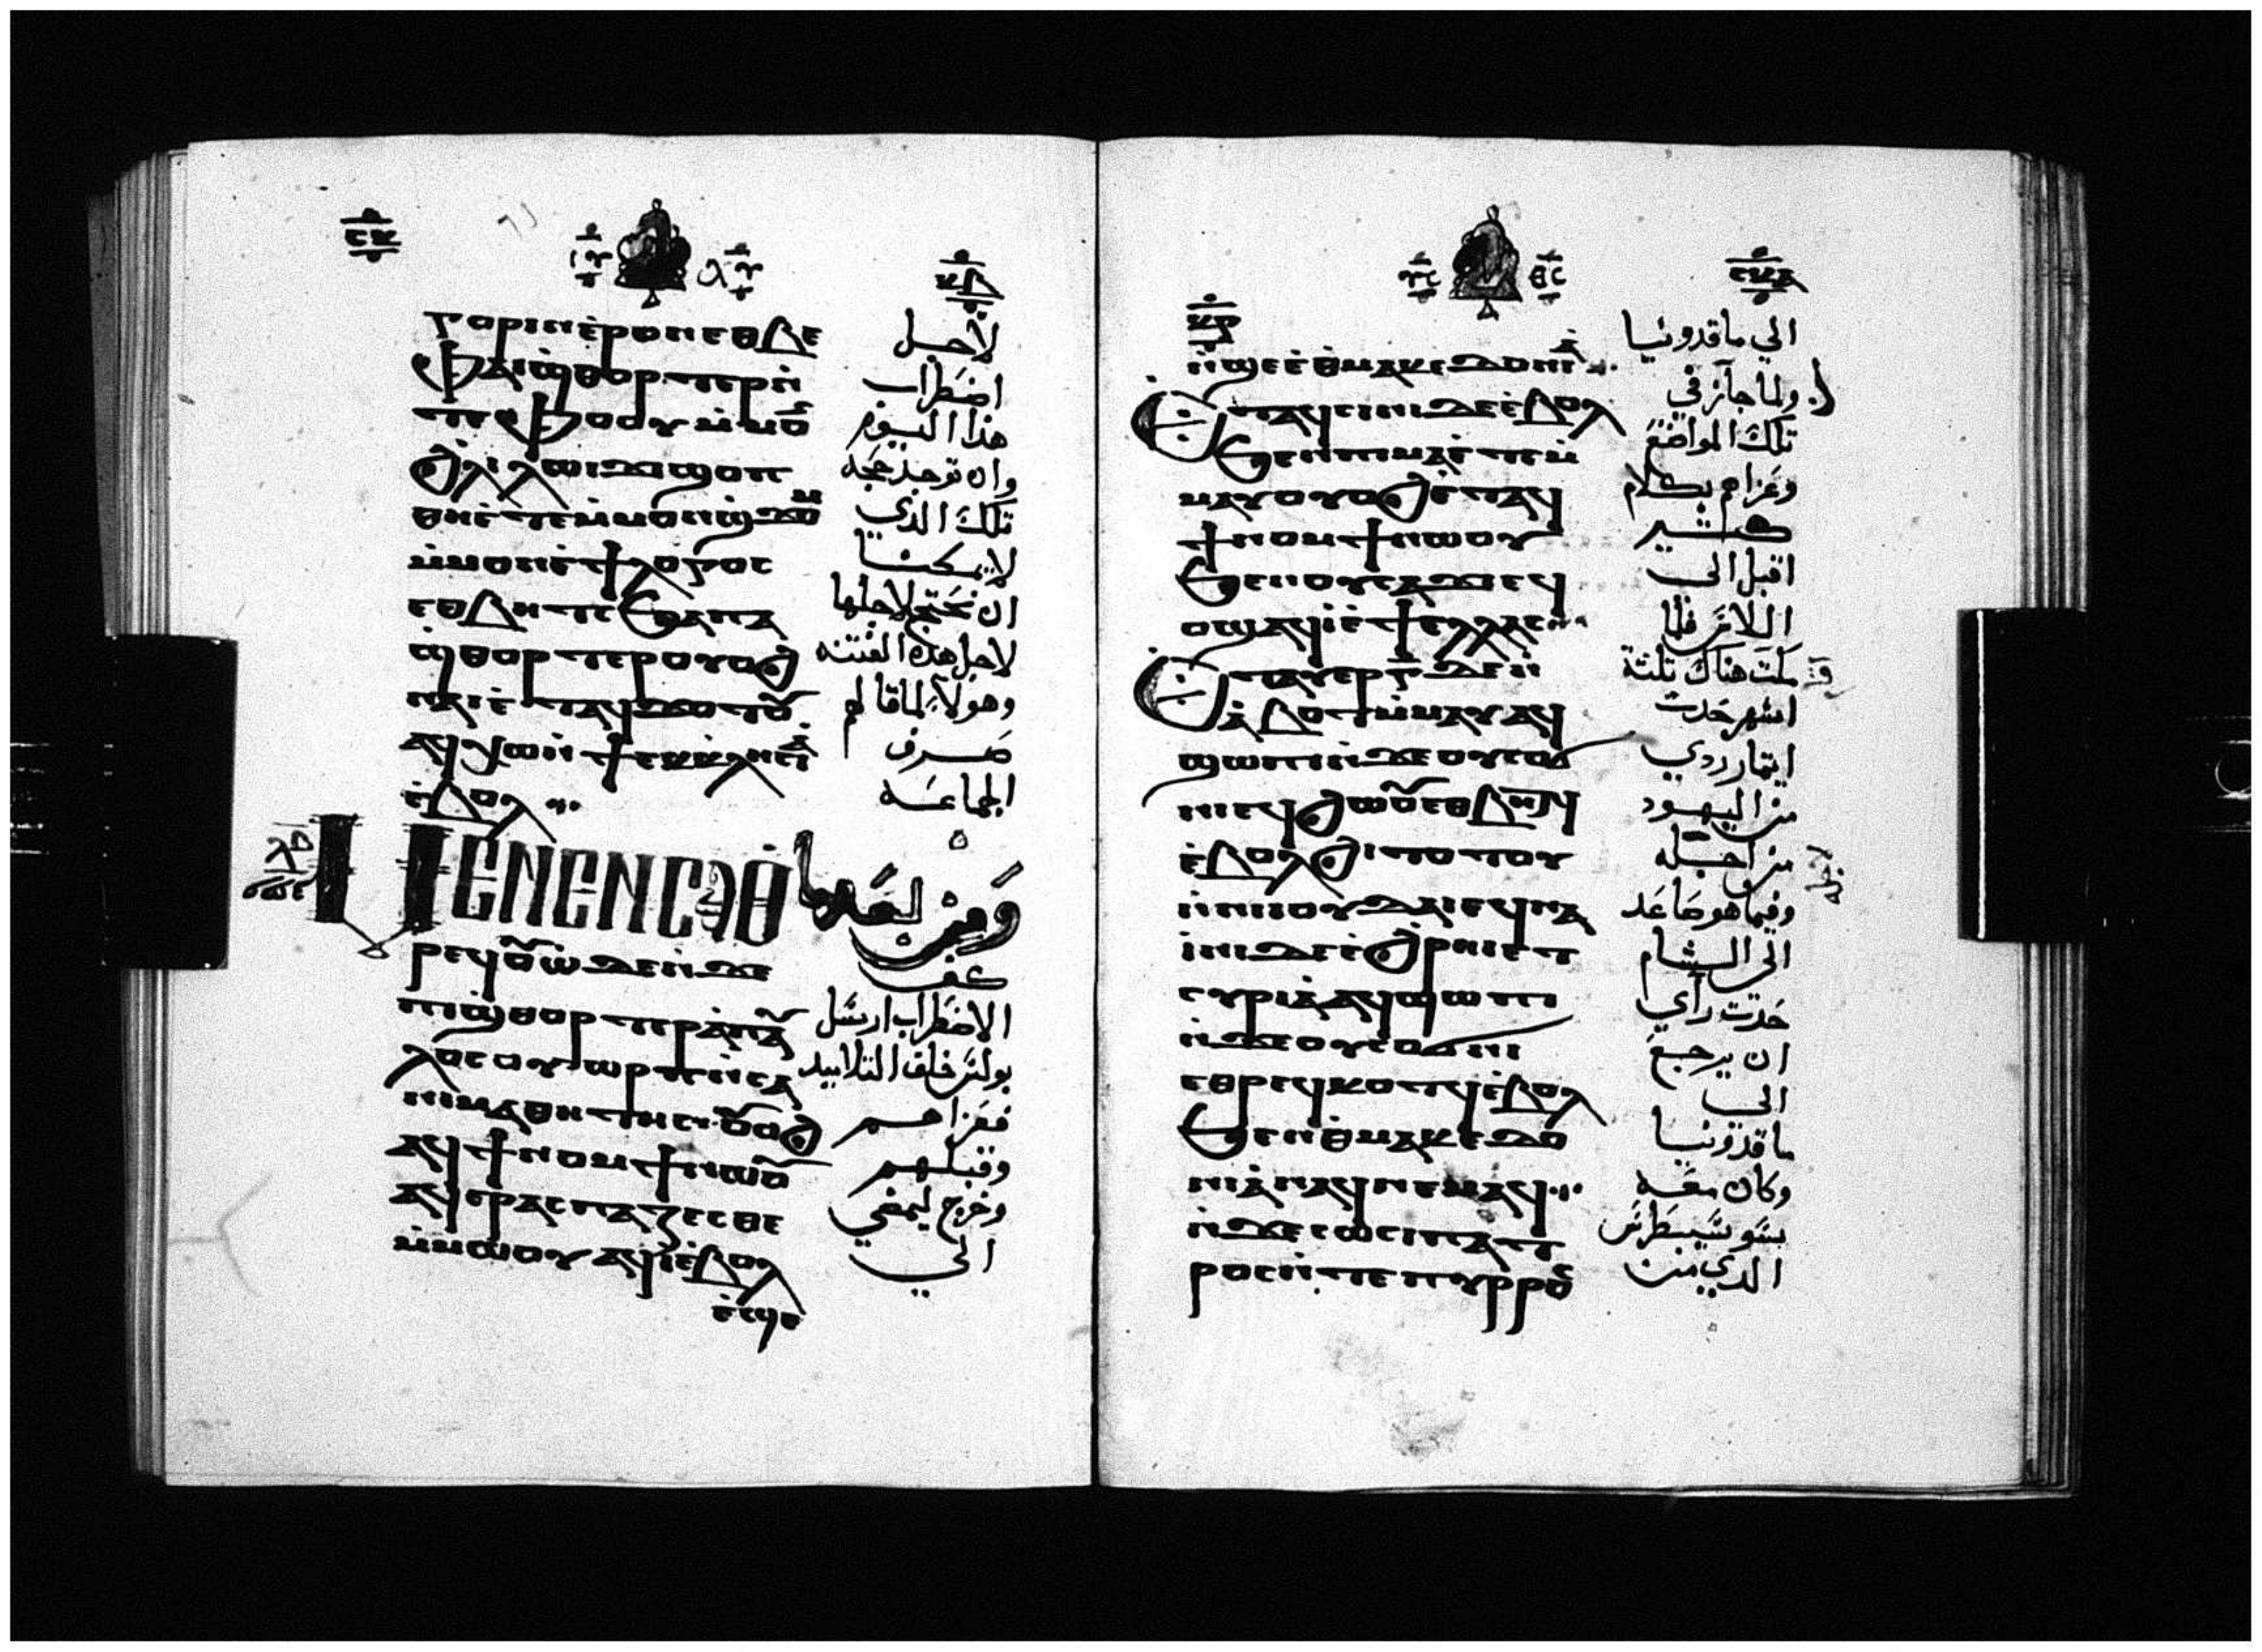 ⲅⲟⲣⲓⲛ ⲉ̀ⲣⲟⲛ ⲉⲑⲃⲉ
ⲫⲁⲓϣ̀ⲑⲟⲣⲧⲉⲣ ⲛ̀
ⲧⲉ ⲫⲟⲟⲩ ⲙ̀ⲙⲟ̄
ϩⲗⲓ ⲗⲱⲓϫⲓ ϣⲟⲡ
ⲑⲏⲉ̀ⲧⲉⲙ̀ⲙⲟⲛϣ̀ϫⲟⲙ
ⲙ̀ⲙⲟⲛ ⲉ̀ϯⲗⲟⲅⲟⲥ
ⲉⲑⲃⲏⲧⲥ ϧⲁⲡⲁ
ϣ̀ⲑⲟⲣⲧⲉⲣ ⲟⲩⲟϩ
ⲛⲁⲓ ⲉ̀ⲧⲁϥϫⲟⲧⲟⲩ
ⲁϥⲭⲱ ⲛ̀ϯⲉⲕⲕⲗⲏⲥⲓⲁ
ⲉ̀ⲃⲟⲗ
ⲙⲉⲛⲉⲛⲥⲁⲑ
ⲣⲉϥⲟⲩⲱ ϫⲉ ⲛ̀ϫⲉ
ⲡⲓϣ̀ⲑⲟⲣⲧⲉⲣ ⲁ̀ⲡⲁⲩ
ⲗⲟⲥ ⲟⲩⲱⲣⲡ ⲛ̀ⲥⲁ
ⲛⲓⲙⲁⲑⲏⲧⲏⲥ ⲟⲩⲟϩ
ⲁϥϯⲛⲟⲙϯ ⲛⲱⲟⲩ
ⲁϥⲉⲣⲁⲥⲡⲁⲍⲉⲥⲑⲉ
ⲙ̀ⲙⲱⲟⲩ ⲁϥⲓ ⲉ̀ⲃⲟⲗ
لاجل
اضطراب
هذا اليوم
وان توجد حجه
تلك الذي
لا يمكننا
ان نحتج لاجلها
لاجل هذه الفتنه
وهولاء لما قالهم
صرف
الجماعه
ومن بعدما
كف
الاضطراب ارسل
بولس خلف التلاميد
فعزاهم
وقبلهم
وخرج ليمضي
الي
ⲛ̀ϣⲉ ⲉ̀ⲑⲙⲁⲕⲉⲇⲟⲛⲓⲁ
ⲉⲧⲁϥⲥⲓⲛⲓ ⲇⲉ ⲉ̀ⲃⲟⲗ
ϧⲉⲛⲛⲓⲙⲁ ⲉ̀ⲧⲉⲙ̀
ⲙⲁⲩ ⲟⲩⲟϩ ⲉ̀ⲧⲁϥ
ϯⲛⲟⲙϯ ⲛⲱⲟⲩ
ϧⲉⲛⲟⲩⲥⲁϫⲓ ⲉϥ
ⲟϣ ⲁϥⲓ̀ ⲉ̀ϯⲉⲗⲗⲁⲥ
ⲉⲧⲁϥⲉⲣ ⲅ̄ ⲇⲉ ⲛ̀
ⲁ̀ⲃⲟⲧ ⲙ̀ⲙⲁⲩ ⲁϥ
ϣⲱⲡⲓ ⲛ̀ϫⲉ ⲟⲩⲥⲟϭ
ⲛⲓ ⲉϥϩⲱⲟⲩ ⲉⲑⲃⲏⲧϥ
ⲉ̀ⲃⲟⲗϩⲓⲧⲟⲧⲟⲩ
ⲛ̀ⲛⲓⲓⲟⲩⲇⲁⲓ ⲉϥⲛⲁ
ⲓ̀ⲛⲓ ⲇⲉ ⲉ̀ϩⲣⲏⲓ ⲉⲧ
ⲥⲩⲣⲓⲁ̀ ⲁϥϣⲱⲡⲓ
ⲛ̀ϫⲉ ⲟⲩⲥⲟϭⲛⲓ
ⲉⲑⲣⲉϥⲕⲟⲧϥ ⲉ̀ⲃⲟⲗ
ϧⲉⲛⲑⲙⲁⲕⲉⲇⲟ
ⲛⲓⲁ̀ ⲛⲁϥⲛⲉⲙⲁϥ
ⲛ̀ϫⲉ ⲥⲱⲥⲓⲡⲁⲧ
ⲣⲟⲥ ⲛ̀ⲧⲉ ⲡⲩⲣⲣⲟⲩ
الي ماقدونيا
ولما جاز في
تلك المواضع
وعزاهم بكلام
كثير
اقبل الي
اللاس فلما
مكت هناك ثلثة
اشهر حدث
ايتمار ردي
من اليهود
من اجله
وفيما هو صاعد
الي الشام
حدث راي
ان يرجع
الي
ماقدونيا
وكان معه
سوسيبطرس
الدي من